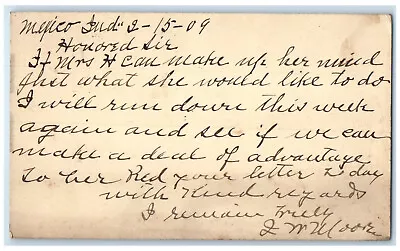 Mexico Ind" 2-15-09
Honored Sir
If Mrs H Can make up her mind
Just what she would like to do
I will run down this week
again and see if we can
make a deal of advantage
to her Red your letter to day
with Kind regards
I remain Truly
J W Moore